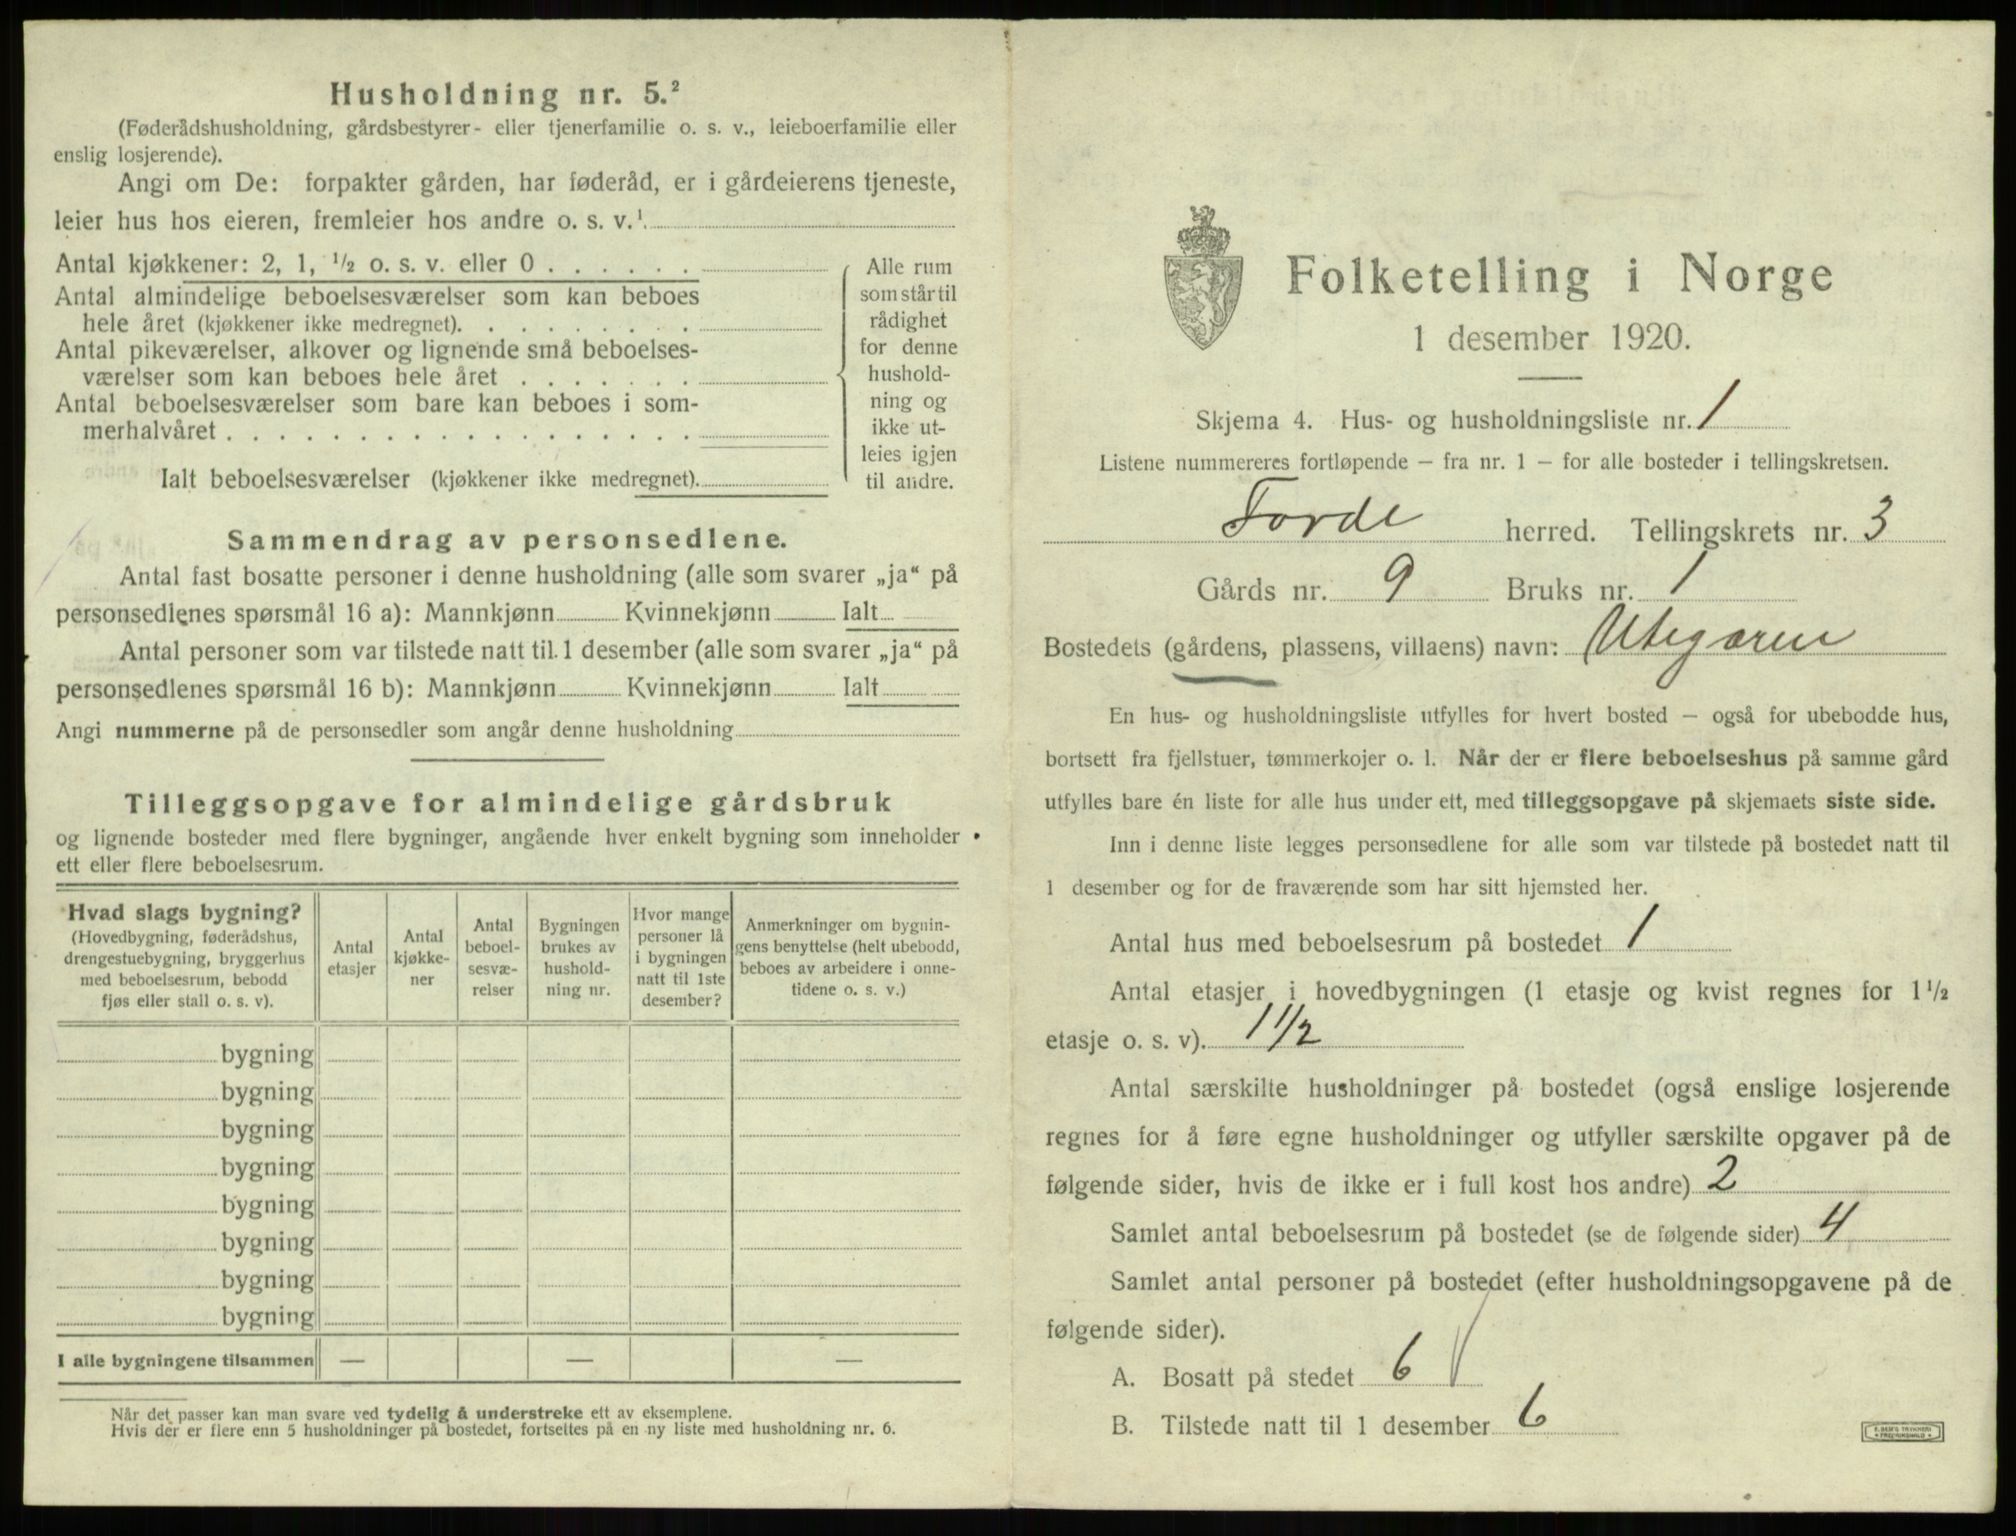 Husholdning nr. 5.²
(Føderådshusholdning, gårdsbestyrer- eller tjenerfamilie o. s. v., leieboerfamilie eller
enslig losjerende).
Angi om De: forpakter gården, har føderåd, er i gårdeierens tjeneste,
leier hus hos eieren, fremleier hos andre o. s. v.¹
Antal kjøkkener: 2, 1, ½ o. s. v. eller 0 . . . . . .
Antal almindelige beboelsesværelser som kan beboes
hele året (kjøkkener ikke medregnet). . . . . . . . .
Antal pikeværelser, alkover og lignende små beboelses-
værelser som kan beboes hele året . . . . . . .
Antal beboelsesværelser som bare kan beboes i som-
merhalvåret . . . . . . . . . . . . . . . . . .
Ialt beboelsesværelser (kjøkkener ikke medregnet).
Alle rum
som står til
rådighet
for denne
hushold-
ning og
ikke ut-
leies igjen
til andre.
Sammendrag av personsedlene.
Antal fast bosatte personer i denne husholdning (alle som svarer „ja“ på
personsedlenes spørsmål 16 a): Mannkjønn Kvinnekjønn Ialt
Antal personer som var tilstede natt til 1 desember (alle som svarer „ja“ på
personsedlenes spørsmål 16 b): Mannkjønn Kvinnekjønn Ialt
Angi nummerne på de personsedler som angår denne husholdning
Tilleggsopgave for almindelige gårdsbruk
og lignende bosteder med flere bygninger, angående hver enkelt bygning som inneholder
ett eller flere beboelsesrum.
Hvad slags bygning?
(Hovedbygning, føderådshus,
drengestuebygning, bryggerhus
med beboelsesrum, bebodd
fjøs eller stall o. s. v).
Antal
etasjer
Antal
kjøkke-
ner
Antal
beboel-
sesvæ-
relser
Bygningen
brukes av
hushold-
ning nr.
Hvor mange
personer lå
i bygningen
natt til 1ste
desember?
Anmerkninger om bygnin-
gens benyttelse (helt ubebodd,
beboes av arbeidere i onne-
tidene o. s. v.)
bygning
bygning
bygning
bygning
bygning
bygning
bygning
bygning
I alle bygningene tilsammen — — —
Når det passer kan man svare ved tydelig å understreke ett av eksemplene.
Hvis der er flere enn 5 husholdninger på bostedet, fortsettes på en ny liste med husholdning nr. 6.
Folketelling i Norge
1 desember 1920.
Skjema 4. Hus- og husholdningsliste nr. 1
Listene nummereres fortløpende – fra nr. 1 – for alle bosteder i tellingskretsen.
Førde herred. Tellingskrets nr. 3
Gårds nr. 9 Bruks nr. 1
Bostedets (gårdens, plassens, villaens) navn: Utegaren
En hus- og husholdningsliste utfylles for hvert bosted – også for ubebodde hus,
bortsett fra fjellstuer, tømmerkojer o. l. Når der er flere beboelseshus på samme gård
utfylles bare én liste for alle hus under ett, med tilleggsopgave på skjemaets siste side.
Inn i denne liste legges personsedlene for alle som var tilstede på bostedet natt til
1 desember og for de fraværende som har sitt hjemsted her.
Antal hus med beboelsesrum på bostedet 1
Antal etasjer i hovedbygningen (1 etasje og kvist regnes for 1½
etasje o. s. v). 1 1/2
Antal særskilte husholdninger på bostedet (også enslige losjerende
regnes for å føre egne husholdninger og utfyller særskilte opgaver på de
følgende sider, hvis de ikke er i full kost hos andre) 2
Samlet antal beboelsesrum på bostedet (se de følgende sider) 4
Samlet antal personer på bostedet (efter husholdningsopgavene på de
følgende sider).
A. Bosatt på stedet 6
B. Tilstede natt til 1 desember 6